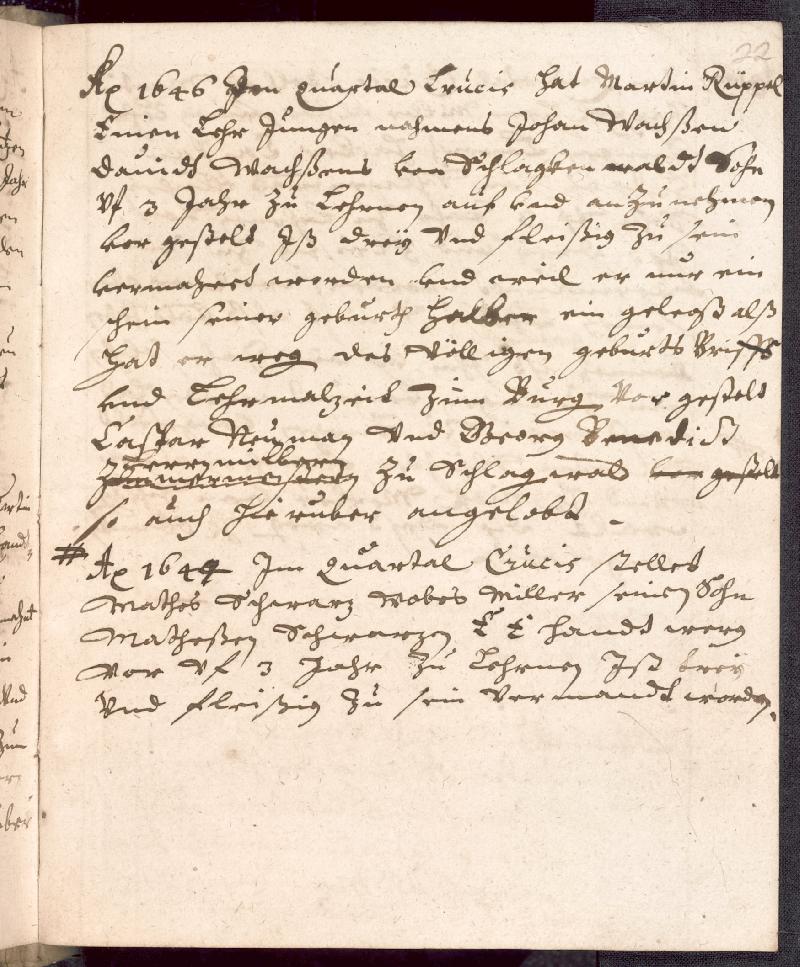 22
Ao 1646 Im Quartal Crucis hat Martin Rüppel
Einen Lehr Jungen nahmens Johan Wachßen
Dauidt Wachßens von Schlagkenwaldt Sohn
Vf 3 Jahr zu Lehrnen auf vnd anzunehmen
vor gestelt Ist drey Vnd fleißig zu sein
vermahnet worden vnd weil er nur ein
schein seiner geburth halber ein gelegt alß
hat er weg des völligen geburts Brieffs
vnd Lehrmalzeit zum Burg vor gestelt
Caspar Neuman Vnd Georg Benedict
zu Schlagwald vor gestelt
so auch hieruber angelobt
# Ao 1644 Im Quartal Crucis stellet
Mathes Schwarz Miller seinen Sohn
Matheßen Schwarzen E E handt werg
vor Vf 3 Jahr zu Lehrnen Ist trey
Vnd fleißig zu sein Vermandt worden